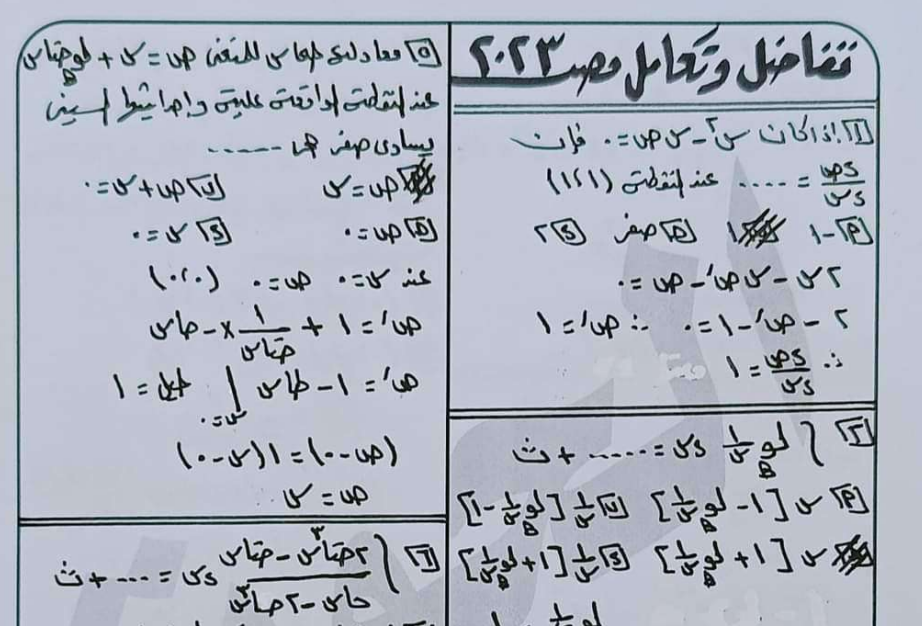 تفاضل وتكامل مصر ٢٠٢٣
[١] إذا كان س٢ - س ص = ٠ فإن
دص/دس = .... عند النقطة (١،١)
[P] -١ [ب] ١ [ج] صفر [د] ٢
٢س - س ص′ - ص = ٠
٢ - ص′ - ١ = ٠ ∴ ص′ = ١
∴ دص/دس = ١
[٢] ∫ لو_هـ ١/س دس = ...... + ث
[P] س [١ - لو_هـ ١/س] [ب] ١/س [لو_هـ ١/س - ١]
س [١ + لو_هـ ١/س] [د] ١/س [لو_هـ ١/س + ١]
لو ١/س
[٥] معادلة المماس للمنحنى ص = س + لو_هـ جتاس
عند النقطة الواقعة عليه وإحداثيها السينى
يساوى صفر هى ......
[P] ص = س [ب] ص + س = ٠
[ج] ص = ٠ [د] س = ٠
عند س = ٠ ص = ٠ (٠،٠)
ص′ = ١ + ١/جتاس × - جاس
ص′ = ١ - طاس |س=٠ الميل = ١
(ص - ٠) = ١ (س - ٠)
ص = س
[٦] ∫ (٢جتا٣س - جتاس)/(جاس - ٢جا٣س) دس = ... + ث